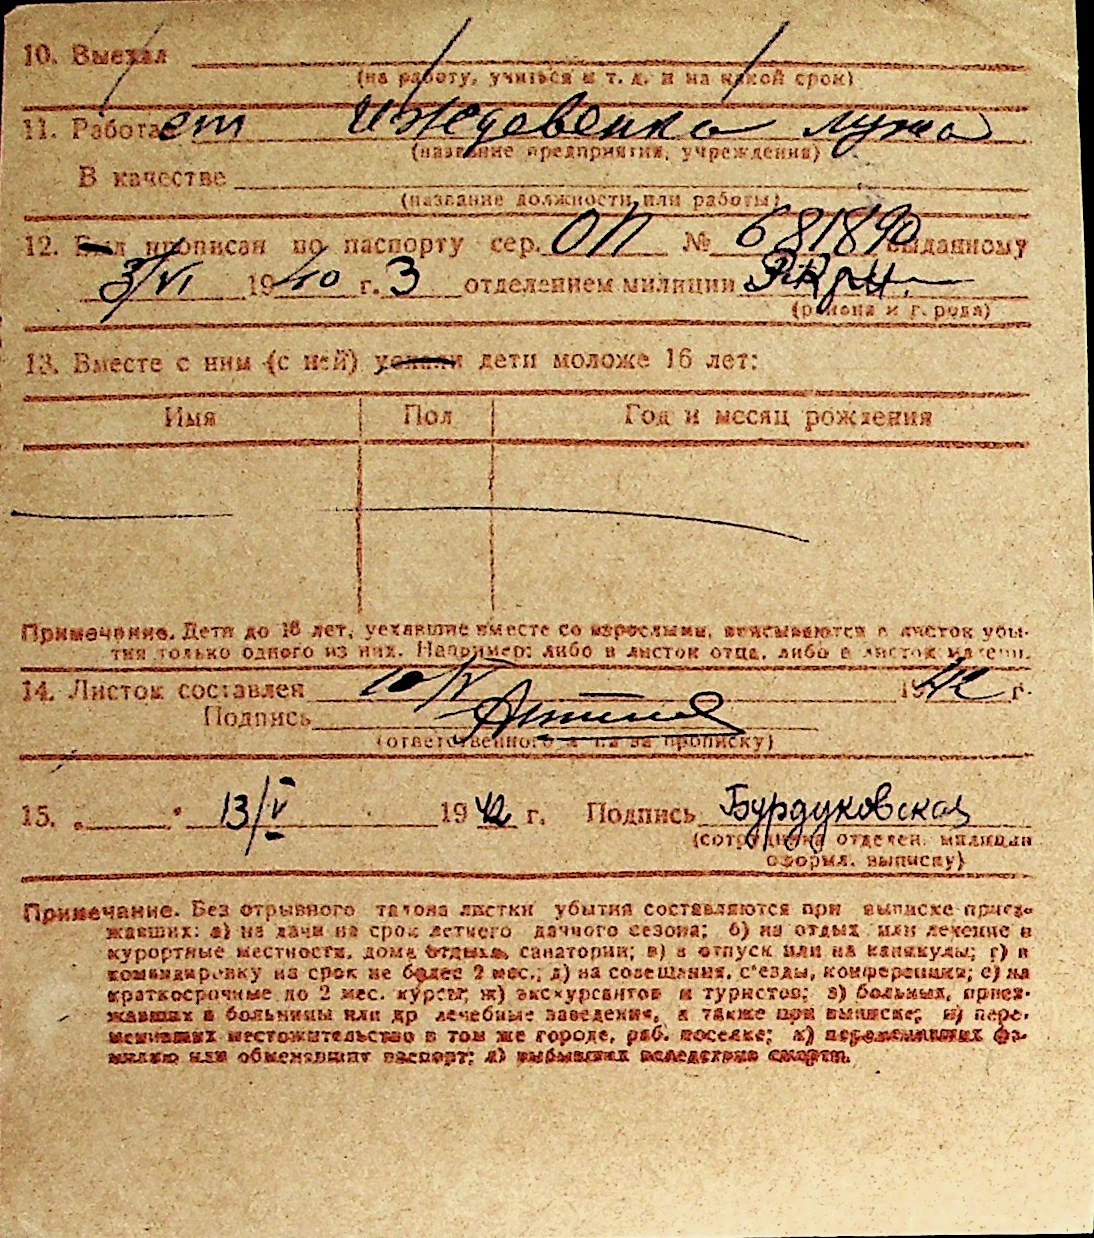 10. Выехал
(на работу, учиться и т. д. и на какой срок)
11. Работает Иждевенка мужа
(название предприятия, учреждения)
В качестве
(название должности или работы)
12. Был прописан по паспорту сер. ОП № 681890 выданному
3/VI 1940 г. 3 отделением милиции
(района и города)
13. Вместе с ним (с ней) уехали дети моложе 16 лет:
Имя Пол Год и месяц рождения
Примечание. Дети до 16 лет, уехавшие вместе со взрослыми, вписываются в листок убы-
тия только одного из них. Например: либо в листок отца, либо в листок матери.
14. Листок составлен 10/V 1942 г.
Подпись
(ответственного л-ца за прописку)
15. „ " 13/V 1942 г. Подпись Бурдуковская
(сотрудника отделен. милиции
оформл. выписку)
Примечание. Без отрывного талона листки убытия составляются при выписке приез-
жавших: а) на дачи на срок летнего дачного сезона; б) на отдых или лечение в
курортные местности, дома отдыха, санатории; в) в отпуск или на каникулы; г) в
командировку на срок не более 2 мес.; д) на совещания, с'езды, конференции; е) на
краткосрочные до 2 мес. курсы; ж) экскурсантов и туристов; з) больных, приез-
жавших в больницы или др лечебные заведения, а также при выписке; и) пере-
менивших местожительство в том же городе, раб. поселке; к) переменивших фа-
милию или обменявших паспорт; л) выбывших вследствие смерти.